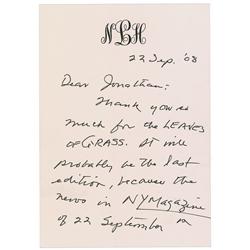 NLH
22 Sep. '08
Dear Jonathan:
Thank you so
much for the LEAVES
of GRASS. It will
probably be the last
edition, because the
news in NYMagazine
of 22 September is